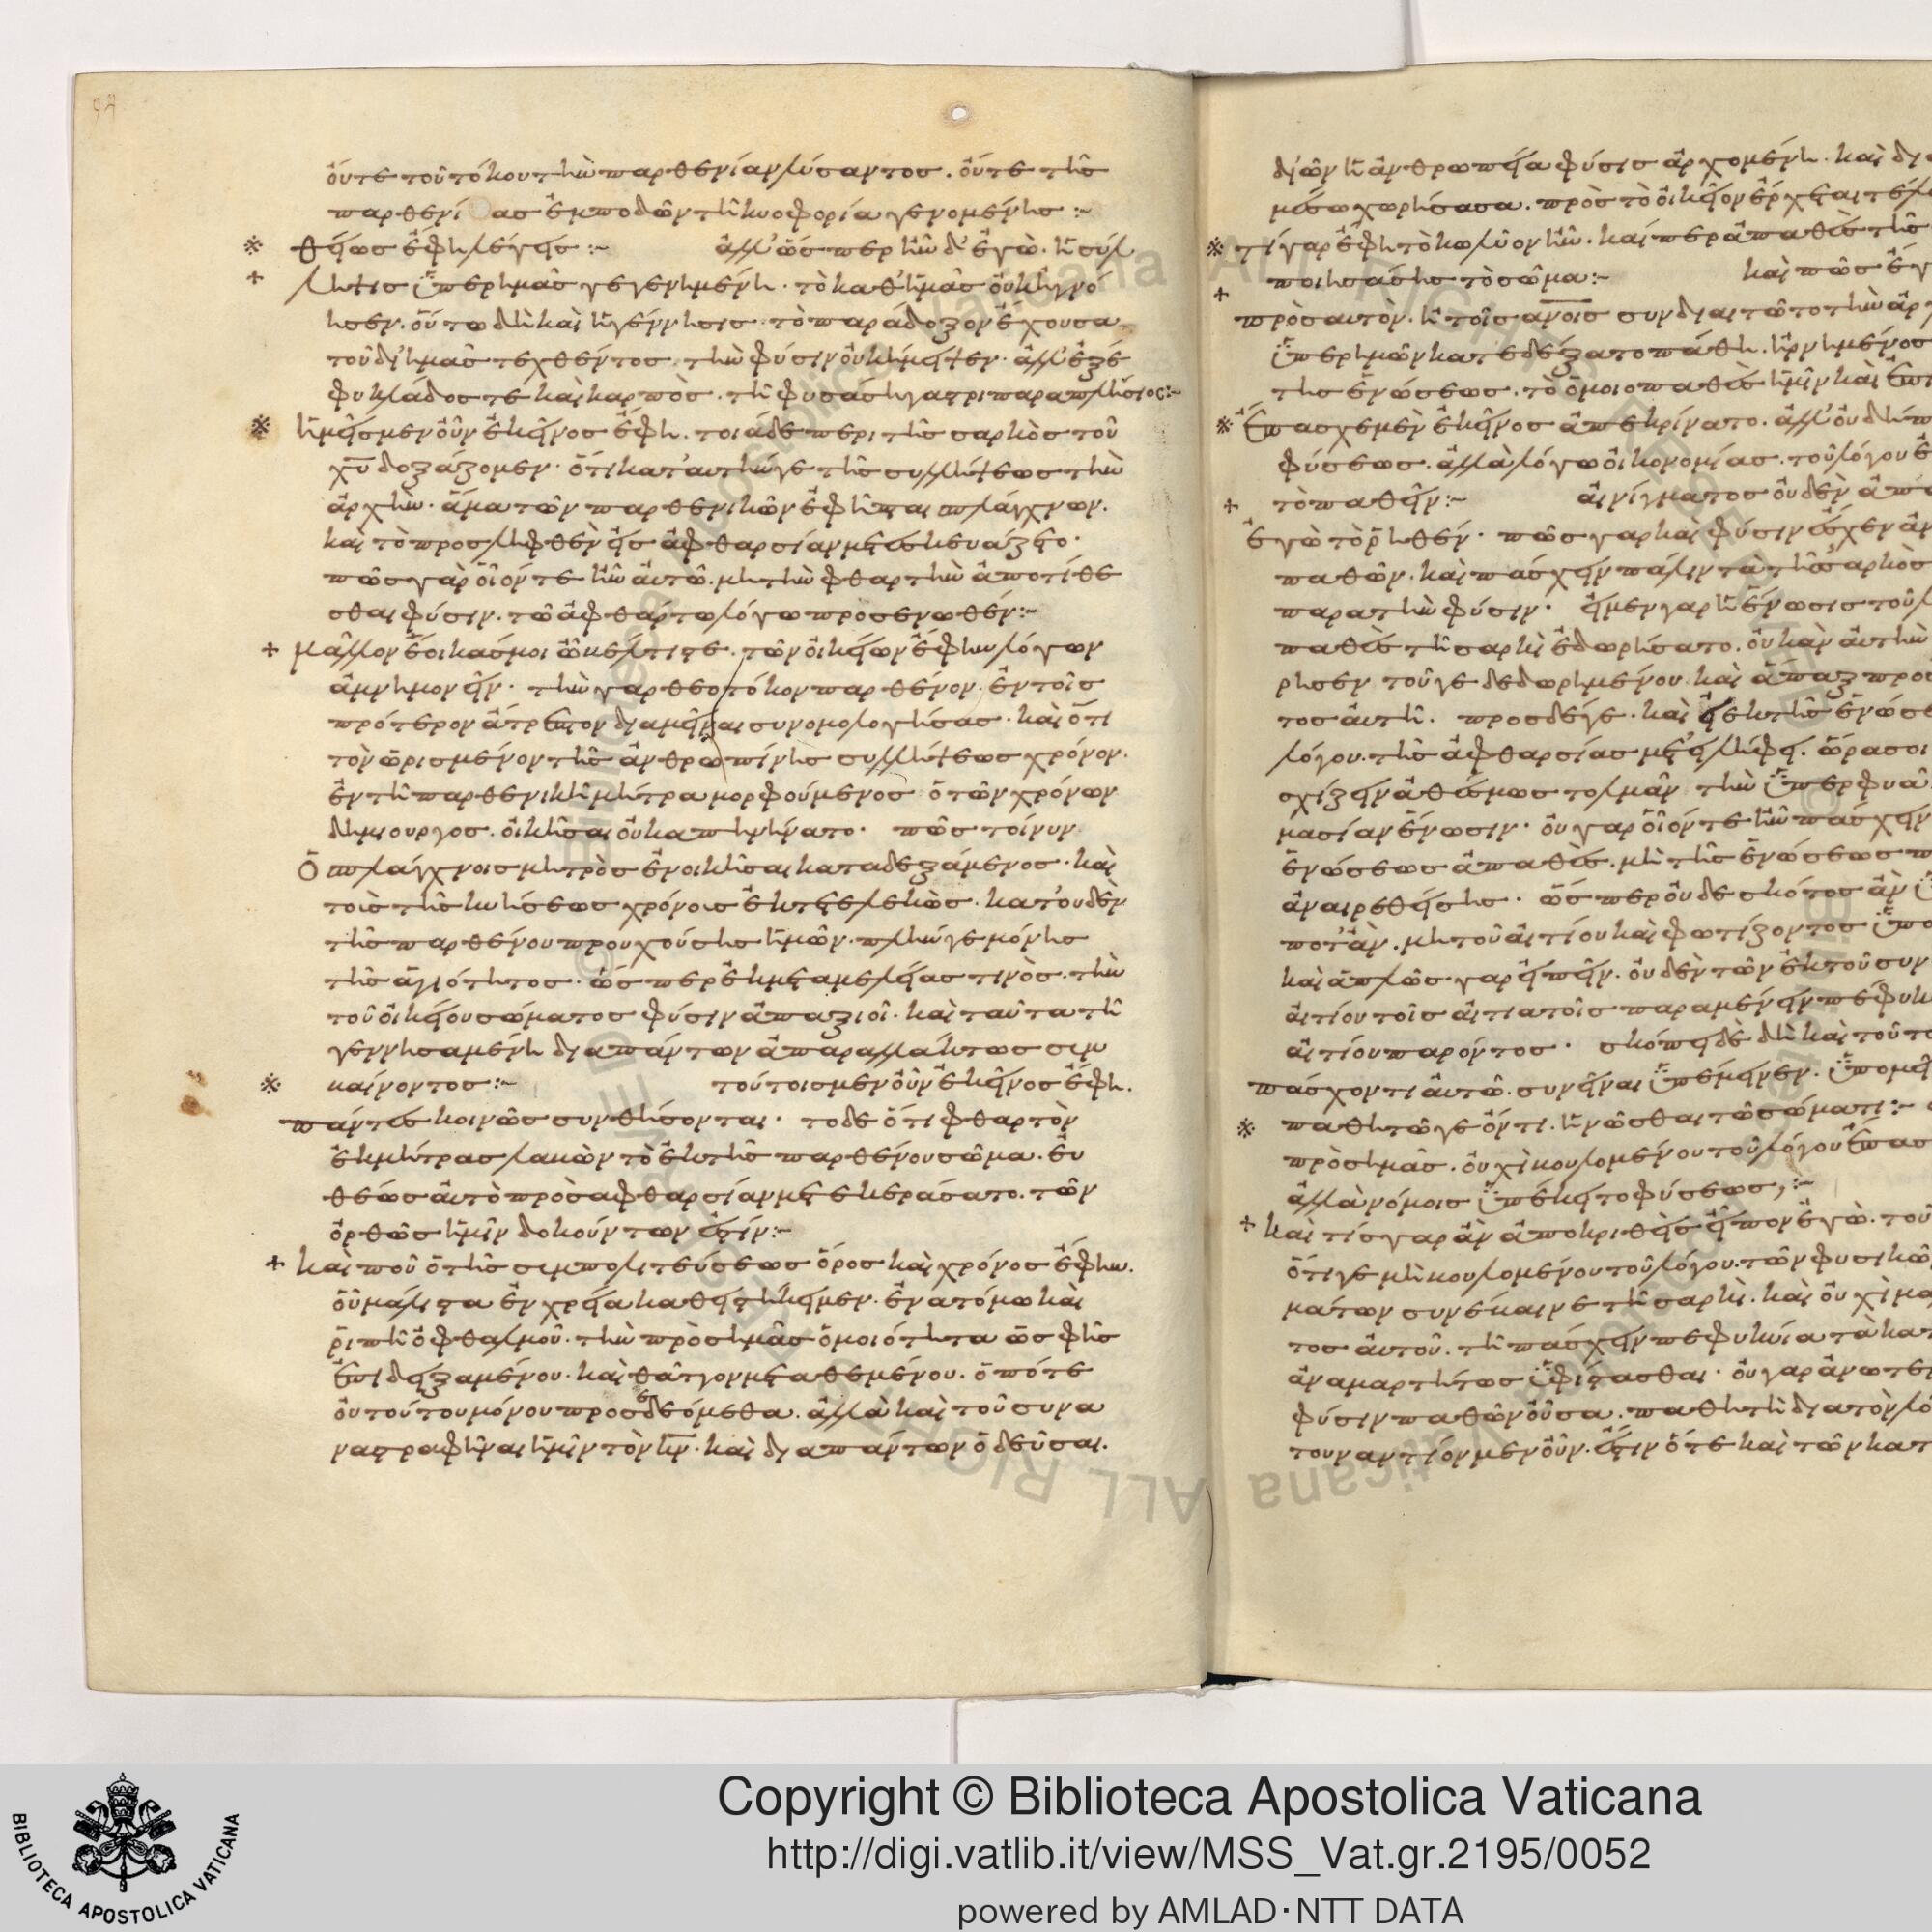 94
οὔτε τοῦ τόκου τὴν παρθενίαν λύσαντος. οὔτε τῆς
παρθενίας ἐμποδὼν τῇ κυοφορία γενομένης :~
※ θείως ἔφη λέγεις :~ ἀλλ' ὥσπερ ἦν δ' ἐγὼ. ἡ σύλ
+ ληψις ὑπὲρ ἡμᾶς γεγενημένη. τὸ καθ' ἡμᾶς οὐκ ἠγνό
ησεν. οὕτω δὴ καὶ ἡ γέννησις τὸ παράδοξον ἔχουσα
τοῦ δι' ἡμᾶς τεχθέντος. τὴν φύσιν οὐκ ἤμειψεν. ἀλλ' ἐξέ
φυ κλάδος τε καὶ καρπὸς. τῆ φυσάσῃ γαστρι παραπλήσιος :~
※ ἡμεῖς μεν οὖν ἐκεῖνος ἔφη. τοιάδε περι τῆς σαρκὸς τοῦ
χυ δοξάζομεν. ὅτι κατ' αυτήν γε τῆς συλλήψεως τὴν
ἀρχὴν. ἅμα τῶν παρθενικῶν ἐφῆπται σπλάγχνων.
καὶ τὸ προσληφθὲν εἰς ἀφθαρσίαν μετεσκευάζετο.
πῶς γὰρ οἷόν τε ἦν αὐτῶ. μη τὴν φθαρτὴν ἀποτίθε
σθαι φύσιν. τῶ ἀφθάρτω λόγω προσενωθέν :~
+ μᾶλλον ἔοικάς μοι ὦ βέλτιστε. τῶν οἰκείων ἔφην λόγων
ἀμνημονεῖν. τὴν γαρ θεοτόκον παρθένον. ἐν τοῖς
πρότερον ἄτρεπτον διαμεῖναι συνομολογήσας. καὶ ὅτι
τὸν ὡρισμένον τῆς ἀνθρωπίνης συλλήψεως χρόνον.
ἐν τῇ παρθενικῆ μήτρα μορφούμενος ὁ τῶν χρόνων
δημιουργος. οἰκῆσαι οὐκ απηνήνατο. πῶς τοίνυν
ὁ σπλάγχνοις μητρὸς ἐνοικῆσαι καταδεξάμενος. καὶ
τοῖς τῆς κυήσεως χρόνοις ἐκτετελεκὼς. κατ' ουδὲν
τῆς παρθένου προυχούσης ἡμῶν. πλήν γε μόνης
τῆς ἁγιότητος. ὥσπερ ἐκ μεταμελείας τινὸς. τὴν
τοῦ οἰκείου σώματος φύσιν ἀπαξιοῖ. καὶ ταῦτα τῆ
γεννησαμένη διαπάντων ἀπαραλλάκτως συμ
※ βαίνοντος :~ τούτοις μεν οὖν ἐκεῖνος ἔφη.
πάντες κοινῶς συνθήσονται. το δε ὅτι φθαρτὸν
ἐκ μήτρας λαβὼν τὸ ἐκ τῆς παρθένου σῶμα. εὐ
θέως αὐτὸ πρὸς αφθαρσίαν μετεκεράσατο. τῶν
ὀρθῶς ἡμῖν δοκούντων ἐστίν :~
+ καὶ ποῦ ὁ τῆς συμπολιτεύσεως ὅρος καὶ χρόνος ἔφην.
οὗ μάλιστα ἐν χρεία καθεστήκειμεν. ἐν ατόμω καὶ
ῥιπῆ ὀφθαλμοῦ. τὴν πρὸς ἡμᾶς ὁμοιότητα ὡς φῂς
ἐπιδειξαμένου. καὶ θᾶττον μεταθεμένου. ὁπότε
οὐ τούτου μόνου προσδεόμεθα. ἀλλὰ καὶ τοῦ συνα
ναστραφῆναι ἡμῖν τὸν ιν. καὶ δια πάντων ὁδεῦσαι.
δι' ὧν ἡ ἀνθρωπεία φύσις ἀρχομένη. καὶ δι
μέσω χωρήσασα. πρὸς τὸ οἰκεῖον ἔρχεται τέλ
※ τί γαρ ἔφη τὸ κωλῦον ἦν. καίπερ ἀπαθὲς τῆς
ποιησάσης τὸ σῶμα :~ καὶ πῶς ἐγ
+ πρὸς αυτὸν. ἢ τοῖς ανοις συνδιαιτῶτο τὴν ἀρ
ὑπὲρ ἡμῶν κατεδέξατο πάθη. ἠρνημένος
της ἑνώσεως. τὸ ὁμοιοπαθὲς ἡμῖν καὶ ἐπ
※ Ἔπασχε μὲν ἐκεῖνος ἀπεκρίνατο. ἀλλ' οὐ δήπ
φύσεως. ἀλλὰ λόγω οἰκονομίας. τοῦ λόγου ἐ
+ τὸ παθεῖν :~ αἰνίγματος οὐδὲν ἀπο
ἐγὼ τὸ ῥηθέν. πῶς γαρ καὶ φύσιν εἶχεν ἀν
παθῶν. καὶ πάσχειν πάλιν τὰ τῆς σαρκὸς
παρα τὴν φύσιν. εἰ μεν γαρ ἡ ἕνωσις τοῦ λ
παθὲς τῆ σαρκὶ ἐδωρήσατο. οὐκ ἂν αὐτὴν
ρησεν τοῦ γε δεδωρημένου. καὶ ἅπαξ προσ
τος αὐτῆ. προσδέ γε. καὶ εἰ ἐκ τῆς ἑνώσε
λόγου. τῆς ἀφθαρσίας μετείληφει. ὅρα σοι
σχίζειν ἀθέσμως τολμᾶν τὴν ὑπερφυᾶ
μασίαν ἕνωσιν. οὐ γαρ οἷόν τε ἦν πάσχειν
ἑνώσεως ἀπαθὲς. μὴ τῆς ἑνώσεως π
ἀναιρεθείσης. ὥσπερ οὐδε σκότος ἂν
ποτ' ἂν. μη τοῦ αἰτίου καὶ φωτίζοντος ὑπο
καὶ ἁπλῶς γαρ εἰπεῖν. οὐδὲν τῶν ἐκ τοῦ συν
αἰτίου τοῖς αἰτιατοῖς παραμένειν πέφυκ
αἰτίου παρόντος. σκόπει δὲ δὴ καὶ τοῦτο
πάσχοντι αὐτῶ. συνεῖναι ὑπέμεινεν. ὑπομεί
※ παθητῶ γε ὄντι. ἡνῶσθαι τῶ σώματι :~
πρὸς ἡμᾶς. οὐχὶ βουλομένου τοῦ λόγου ἔπασ
ἀλλὰ νόμοις ὑπέκειτο φύσεως, :~
+ καὶ τίς γαρ ἂν ἀποκριθεὶς εἶπον ἐγὼ. τοῦ
ὅτι γε μὴ βουλομένου τοῦ λόγου. τῶν φυσικῶ
μάτων συνέβαινε τῆ σαρκὶ. καὶ οὐχὶ μα
τος αὐτοῦ. τῆ πάσχειν πεφυκυία τὰ κατ
ἀναμαρτήτως ὑφίστασθαι. οὐ γαρ ἀνωτε
φύσιν παθῶν οὖσα. παθητὴ δια τὸν λό
τουναντίον μεν οὖν. ἔστιν ὅτε καὶ τῶν κατ
BIBLIOTECA APOSTOLICA VATICANA
Copyright © Biblioteca Apostolica Vaticana
http://digi.vatlib.it/view/MSS_Vat.gr.2195/0052
powered by AMLAD·NTT DATA